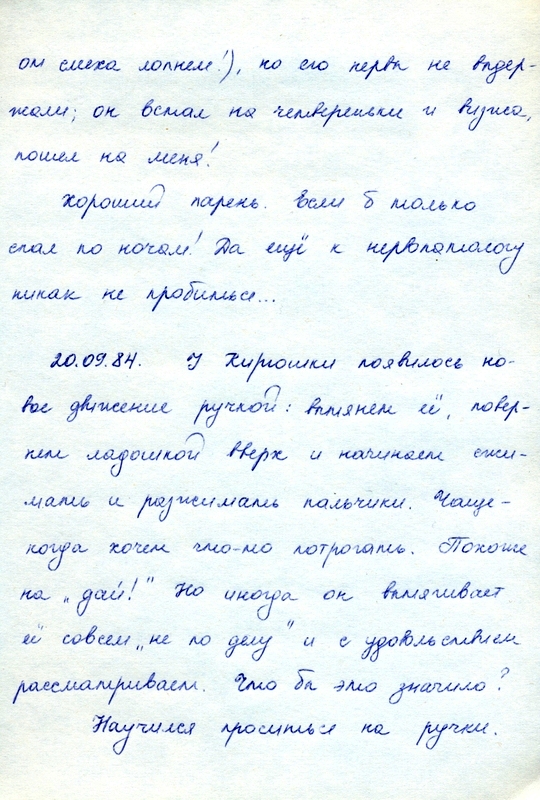 ом смеха лопнем!), но его нервы не выдер-
жали; он встал на четвереньки и визжа,
пошел на меня!
Хороший парень. Если б только
спал по ночам! Да ещё к невропатологу
никак не пробиться...
20.09.84. У Кирюшки появилось но-
вое движение ручкой: вытянет её, повер-
нет ладошкой вверх и начинает сжи-
мать и разжимать пальчики. Чаще -
когда хочет что-то потрогать. Похоже
на „дай!" Но иногда он вытягивает
её совсем „не по делу" и с удовольствием
рассматривает. Что бы это значило?
Научился проситься на ручки.